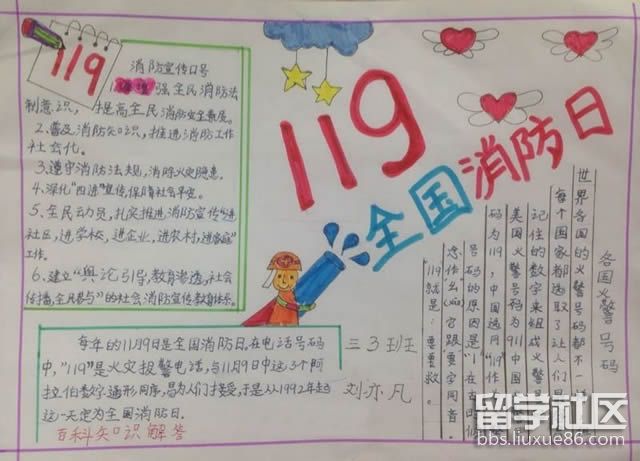 119
消防宣传口号
1.增强全民消防法
制意识，提高全民消防安全素质。
2.普及消防知识，推进消防工作
社会化。
3.遵守消防法规，消除火灾隐患。
4.深化"四进"宣传，保障社会平安。
5.全民动员，扎实推进消防宣传"进
社区，进学校，进企业，进农村，进家庭"
工作。
6.建立"舆论引导，教育渗透，社会
传播，全民参与"的社会消防宣传教育体系。
119
全国消防日
每年的11月9日是全国消防日。在电话号码
中，"119"是火灾报警电话，与11月9日中这3个阿
拉伯数字遍形同序，易为人们接受，于是从1992年起
这一天定为全国消防日。
百科知识解答
三3班
刘亦凡
各国火警号码
世界各国的火警号码都不一样
每个国家都选取了让人们易
记住的数字来组成火警
美国火警号码为911中国
码为119，中国选网"119"作
号码的原因是"1"在古时候
念作幺（yao）跟"要"字同音。
119就是：要要救。
留学社区
bbs.liuxue86.com